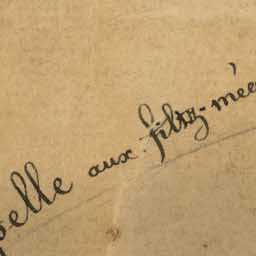 pelle aux filtz-mée